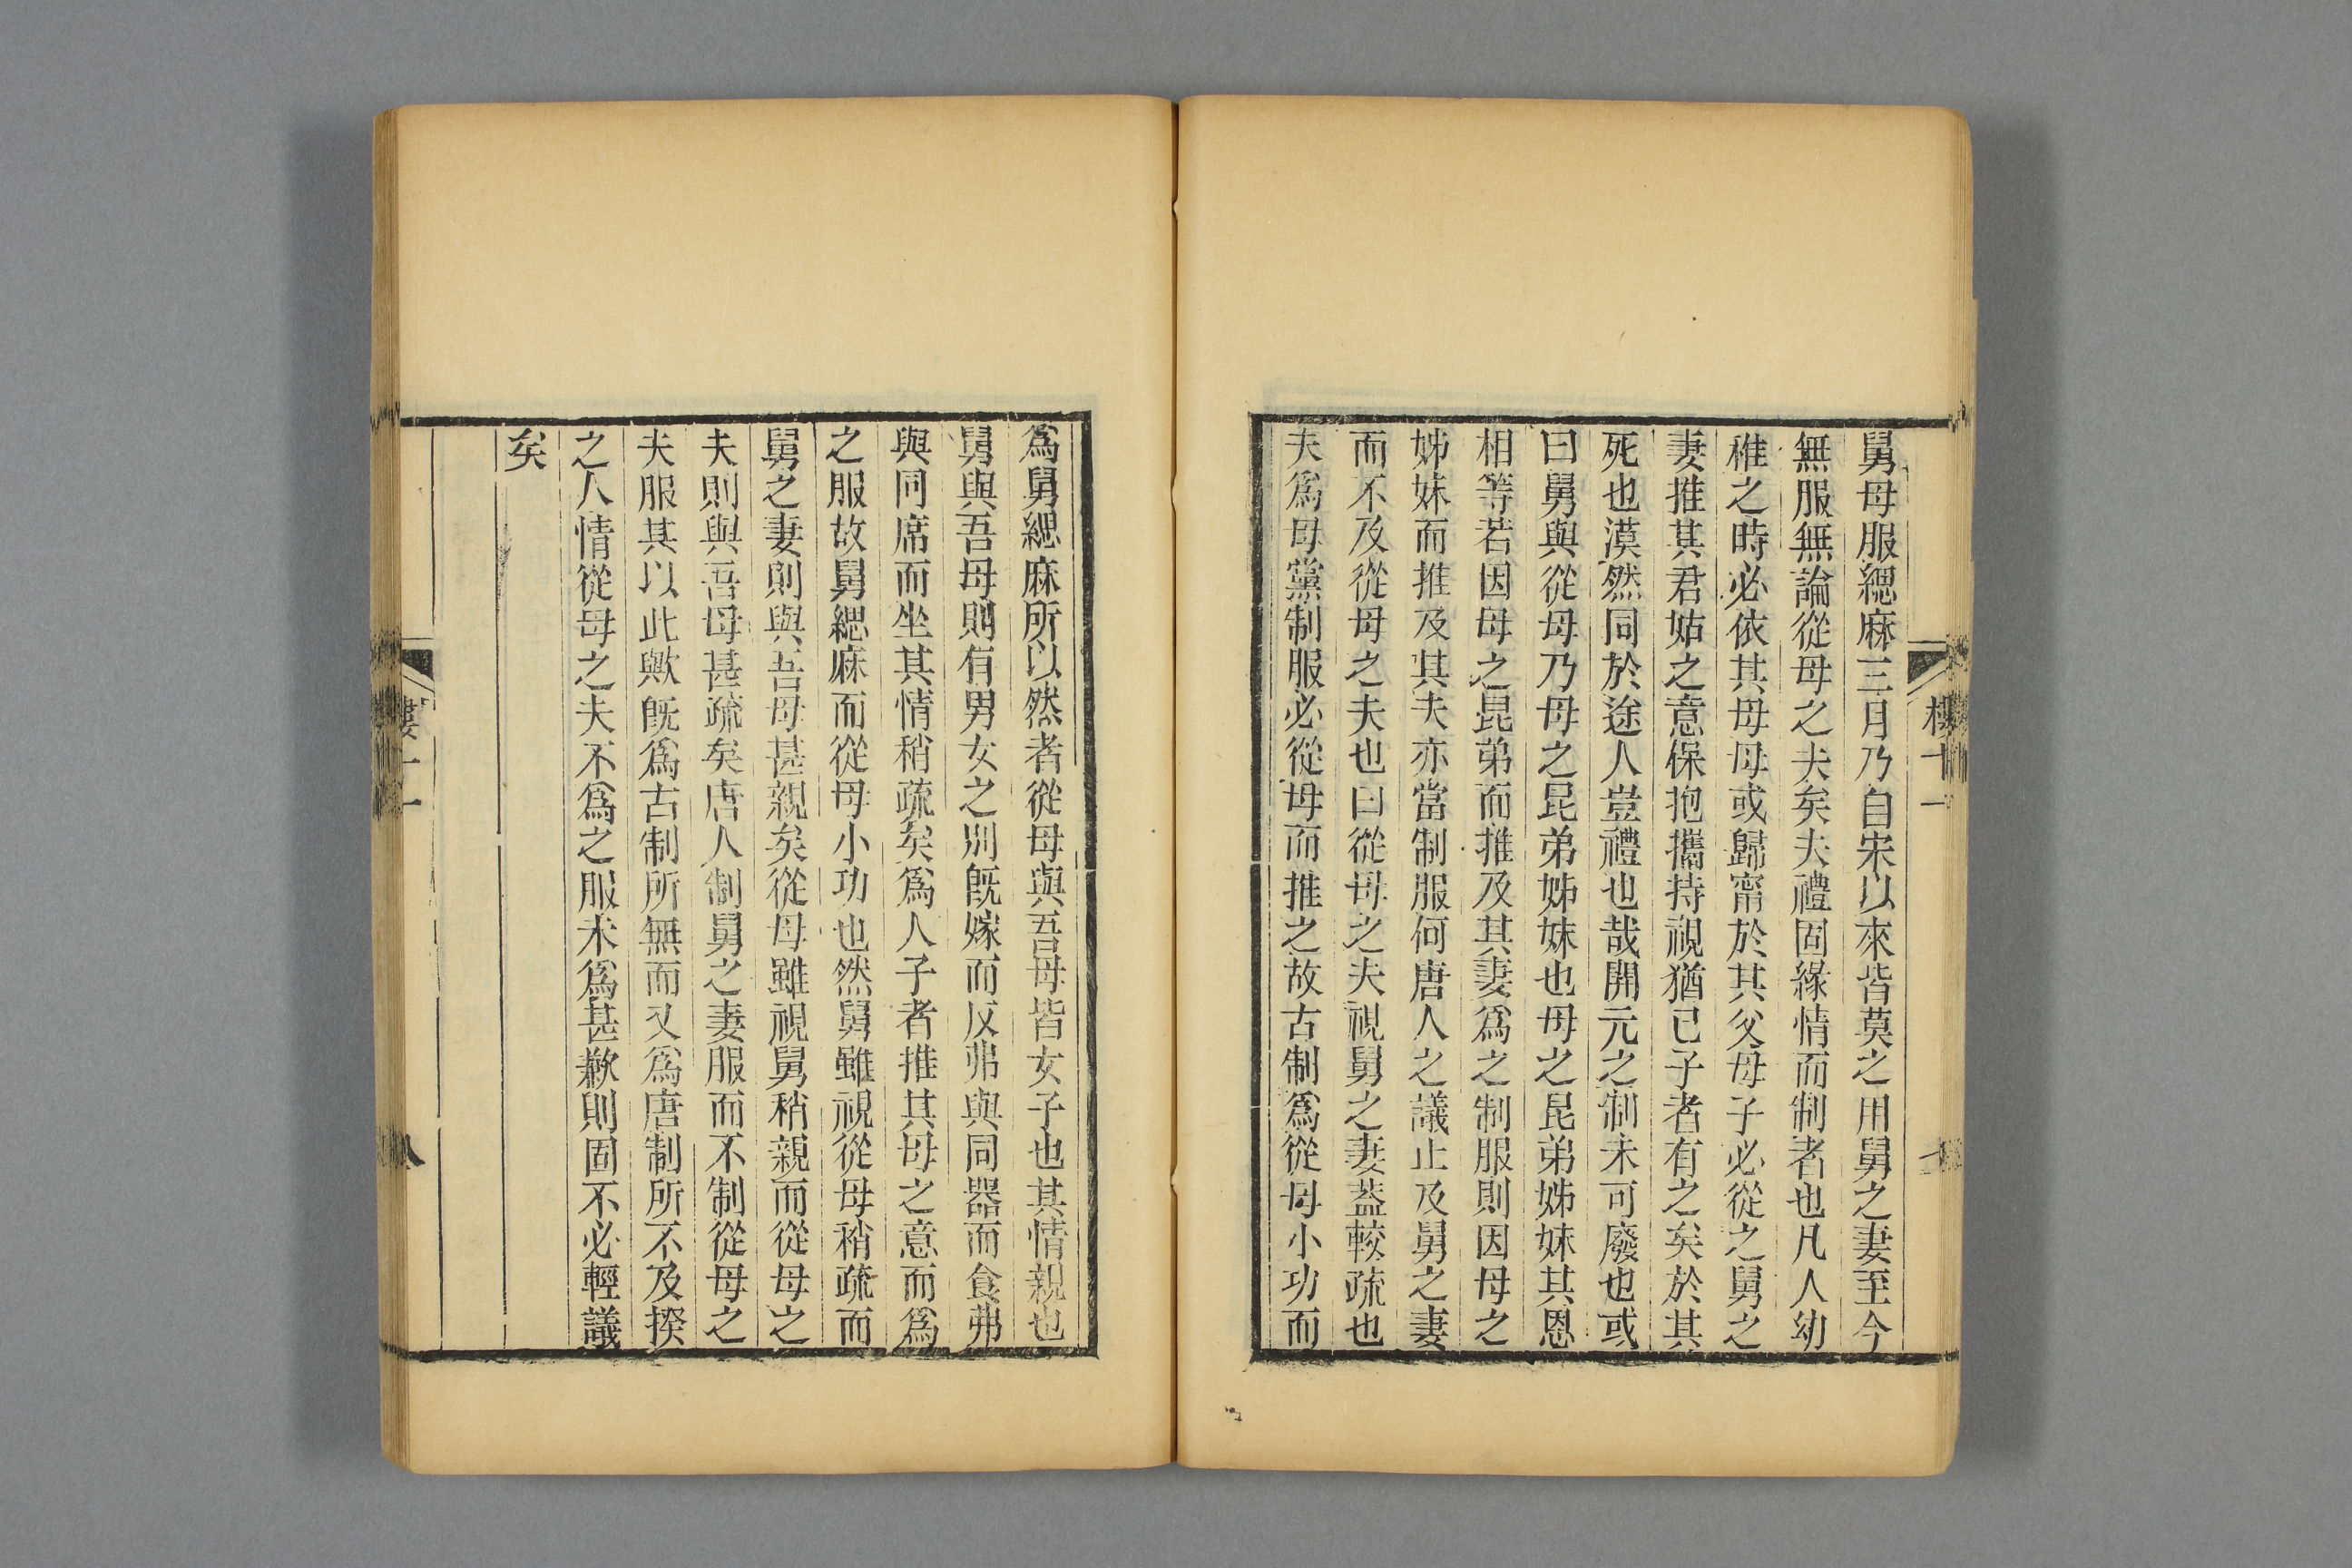 舅母服緦麻三月乃自宋以來皆莫之用舅之妻至今
無服無論從母之夫矣夫禮固緣情而制者也凡人幼
稚之時必依其母母或歸甯於其父母子必從之舅之
妻推其君姑之意保抱攜持視猶已子者有之矣於其
死也漠然同於途人豈禮也哉開元之制未可廢也或
曰舅與從母乃母之昆弟姊妹也母之昆弟姊妹其恩
相等若因母之昆弟而推及其妻爲之制服則因母之
姊妹而推及其夫亦當制服何唐人之議止及舅之妻
而不及從母之夫也曰從母之夫視舅之妻蓋較疏也
夫爲母黨制服必從母而推之故古制爲從母小功而
樓十一
爲舅緦麻所以然者從母與吾母皆女子也其情親也
舅與吾母則有男女之別旣嫁而反弗與同器而食弗
與同席而坐其情稍疏矣爲人子者推其母之意而爲
之服故舅緦麻而從母小功也然舅雖視從母稍疏而
舅之妻則與吾母甚親矣從母雖視舅稍親而從母之
夫則與吾母甚疏矣唐人制舅之妻服而不制從母之
夫服其以此歟旣爲古制所無而又爲唐制所不及揆
之人情從母之夫不爲之服未爲甚歉則固不必輕議
矣
樓十一
八